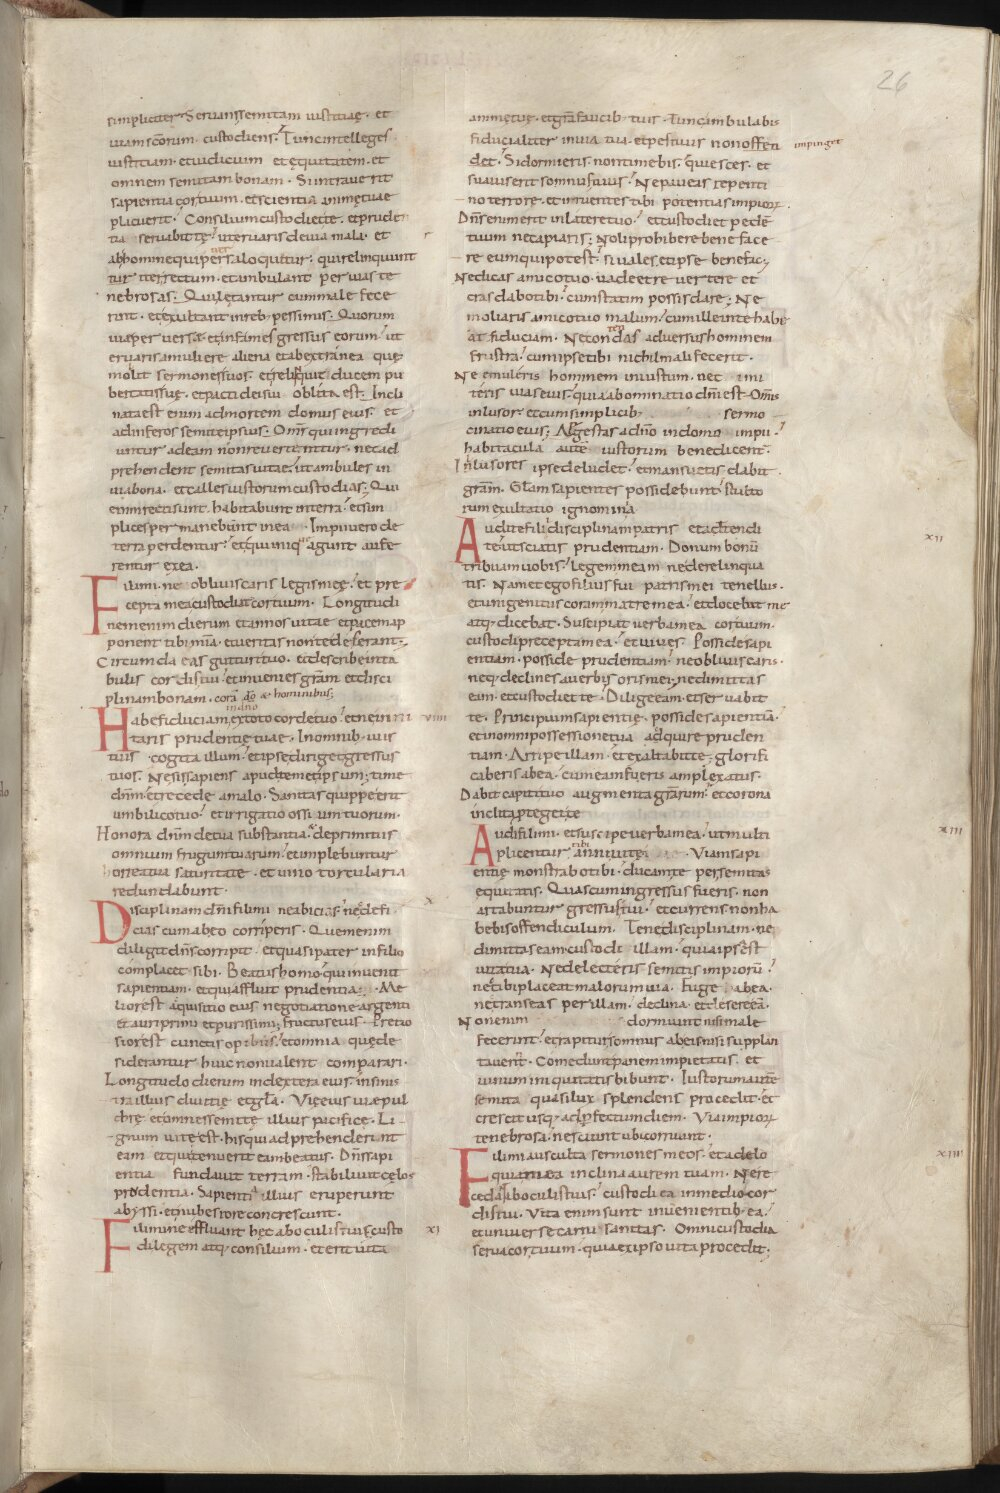 26
simpliciter. Servans semitam iustitiae. et
viam sc̄orum custodiens. Tunc intelleges
iustitiam. et iudicium et equitatem. et
omnem semitam bonam. Si intraverit
sapientia cor tuum. et scientia animę tuae
placuerit. Consilium custodiet te. et pruden
tia servabit te. ut eruaris de via mala. et
ab homine qui perversa loquitur. qui relinquunt
iter rectum. et ambulant per vias te
nebrosas. Qui lętantur cum male fece
rint. et exultant in reb; pessimis. Quorum
viae perversae. et infames gressus eorum. ut
eruaris a muliere aliena et ab extranea quę
mollit sermones suos. et reliquit ducem pu
bertatis suę. et pacti dei sui oblita est. Incli
nata est enim ad mortem domus eius. et
ad inferos semitę ipsius. Om̄s qui ingredi
untur ad eam non revertentur. nec ad
prehendent semitas vitae. ut ambules in
via bona. et calles iustorum custodias. Qui
enim recti sunt. habitabunt in terra. et sim
plices permanebunt in ea. Impii vero de
terra perdentur. et qui inique agunt aufe
rentur ex ea.
Fili mi. ne obliviscaris legis meę. et pre
cepta mea custodiat cor tuum. Longitudi
nem enim dierum et annos vitae et pacem ap
ponent tibi. mīa. et veritas non te deserant.
Circumda eas gutturi tuo. et describe in ta
bulis cordis tui. et invenies grām. et disci
plinam bonam. corā dō et hominibus;
in dn̄o
Habe fiduciam ex toto corde tuo. et ne inni
taris prudentię tuae. In omnib; viis
tuis cogita illum. et ipse diriget gressus
tuos. Ne sis sapiens apud temetipsum; time
dn̄m. et recede a malo. Sanitas quippe erit
umbilico tuo. et irrigatio ossium tuorum.
Honora dn̄m de tua substantia. et de primitiis
omnium frugum tuarum. et implebuntur
horrea tua saturitate. et vino torcularia
redundabunt.
Disciplinam dn̄i fili mi ne abicias. nec defi
cias cum ab eo corriperis. Quem enim
diligit dn̄s corripit. et quasi pater in filio
complacet sibi. Beatus homo qui invenit
sapientiam. et qui affluit prudentia. Me
lior est adquisitio eius negotiatione argenti
et auri primi et purissimi; fructus eius. Pretio
sior est cunctis opibus. et omnia quę de
siderantur huic non valent comparari.
Longitudo dierum in dextera eius. in sinis
tra illius divitię et gła. Vię eius vię pul
chrę. et omnes semitę illius pacificę. Li
gnum vitę est. his qui adprehenderint
eam et qui tenuerit eam beatus. Dn̄s sapi
entia fundavit terram. stabilivit cęlos
prudentia. Sapientia illius eruperunt
abyssi. et nubes rore concrescunt.
Fili mi ne effluant hęc ab oculis tuis. custo
di legem atq; consilium. et erit vita
viiii
x
xi
animę tuę. et grā faucib; tuis. Tunc ambulabis
fiducialiter in via tua. et pes tuus non offen
impinget
det. Si dormieris. non timebis. quiesces. et
suavis erit somnus tuus. Ne paveas repenti
no terrore. et inruentes tibi potentias impiorū.
Dn̄s enim erit in latere tuo. et custodiet pedē
tuum ne capiaris; Noli prohibere bene face
re eum qui potest. si vales. et ipse benefac;
Ne dicas amico tuo. vade et revertere et
cras dabo tibi. cum statim possis dare; Ne
moliaris amico tuo malum. cum ille in te habe
at fiduciam. Ne contendas adversus hominem
frustra. cum ipse tibi nichil mali fecerit.
Ne emuleris hominem iniustum. nec imi
teris vias eius. quia abominatio dn̄i est. Omīs
inlusor. et cum simplicib; sermo
cinatio eius; Aegestas a dn̄o in domo impii.
habitacula autē iustorum benedicent.
Inlusores ipse deludet. et mansuetis dabit
grām. Głam sapientes possidebunt. stulto
rum exultatio ignominia
Audite filii disciplinam patris et adtendi
te ut sciatis prudentiam. Donum bonū
tribuam vobis. legem meam ne derelinqua
tis. Nam et ego filius fui patris mei tenellus.
et unigenitus coram matre mea. et docebat me
atq; dicebat. Suscipiat verba mea cor tuum.
custodi precepta mea. et vives. Posside sapi
entiam. posside prudentiam. ne obliviscaris.
neq; declines a verbis oris mei; ne dimittas
eam. et custodiet te. Dilige eam. et servabit
te. Principium sapientię. posside sapientiā.
et in omni possessione tua adquire pruden
tiam. Arripe illam. et exaltabit te; glorifi
caberis ab ea. cum eam fueris amplexatus.
Dabit capiti tuo augmenta grārum. et corona
inclita proteget te
Audi fili mi. et suscipe verba mea. ut multi
plicentur tibi anni vitę Viam sapi
entię monstrabo tibi. ducam te per semitas
equitatis. Quas cum ingressus fueris. non
artabuntur gressus tui. et currens non ha
bebis offendiculum. Tene disciplinam. ne
dimittas eam. custodi illam. quia ipsa est
vita tua. Ne delecteris semitis impiorū.
nec tibi placeat malorum via. Fuge ab ea.
ne transeas per illam. declina. et desere eā.
Non enim dormiunt nisi male
fecerint. et rapitur somnus ab eis. nisi supplan
taverit. Comedunt panem impietatis. et
vinum iniquitatis bibunt. Iustorum autē
semita quasi lux splendens procedit. et
crescit usq; ad perfectum diem. Via impiorū
tenebrosa. nesciunt ubi corruant.
Fili mi ausculta sermones meos. et ad elo
quia mea inclina aurem tuam. Ne re
cedant ab oculis tuis. custodi ea in medio cor
dis tui. Vita enim sunt invenientib; ea.
et universe carni sanitas. Omni custodia
serva cor tuum. quia ex ipso vita procedit;
xii
xiii
xiiii